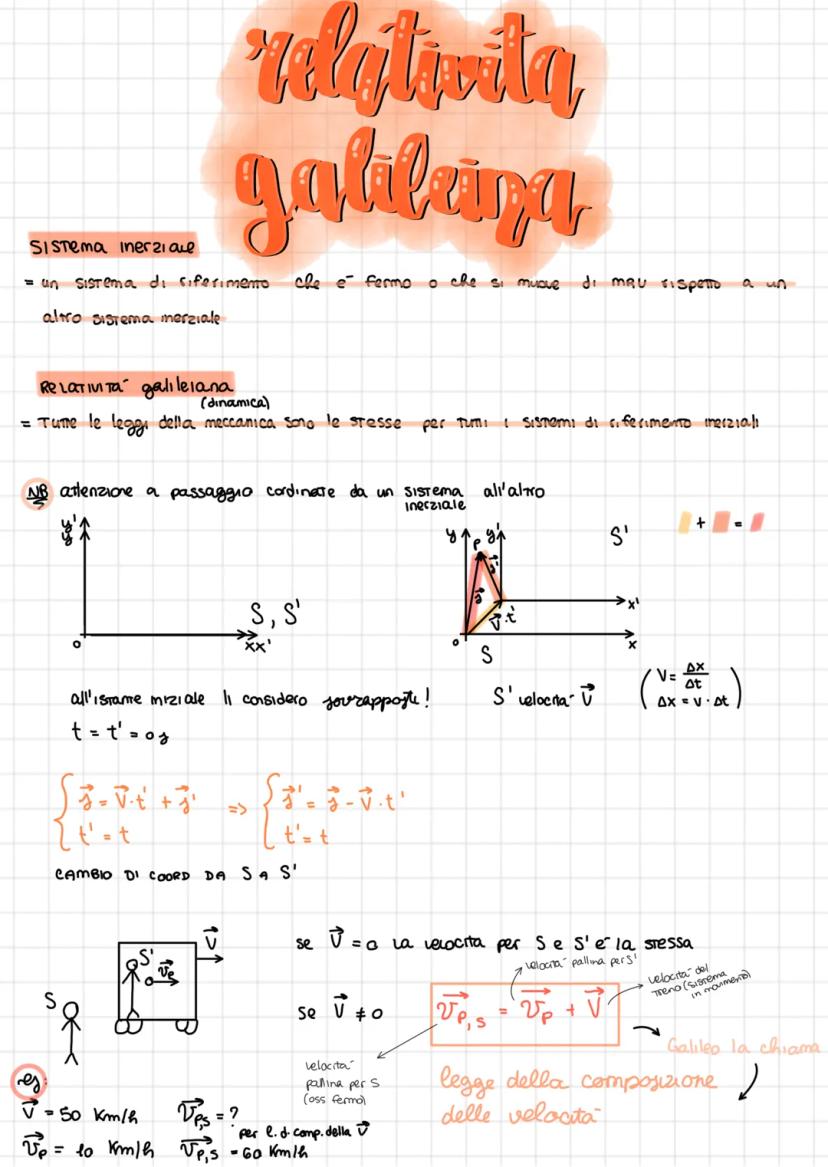 relatività
galileina
SISTEMA INERZIALE
= un SISTEMA di riferimento che è fermo o che si muove di MRU rispetto a un
altro SISTEMA inerziale
RELATIVITA' galileiana
(dinamica)
= Tutte le leggi della meccanica sono le stesse per tutti i sistemi di riferimento inerziali
NB attenzione a passaggio cordinate da un sistema all'altro
inerziale
y'
y
S, S'
o
xx'
+ =
y P y'
S'
s'
s
V t'
x'
o
x
S
all'istante iniziale li considero sovrapposte!
t = t' = 0 s
S' velocità V
(V = Δx/Δt
Δx = V · Δt)
{ s = V·t' + s' => { s' = s - V·t'
t' = t t' = t
CAMBIO DI COORD DA S A S'
S'
Vp
V
S
se V = 0 la velocità per S e S' è la stessa
velocità pallina per S'
velocità del
treno (sistema
in movimento)
se V ≠ 0
Vp,s = Vp + V
velocità
pallina per S
(oss fermo)
Galileo la chiama
legge della composizione
delle velocità
es:
V = 50 Km/h Vp,s = ?
per l. d. comp. della V
Vp = 10 Km/h Vp,s = 60 Km/h